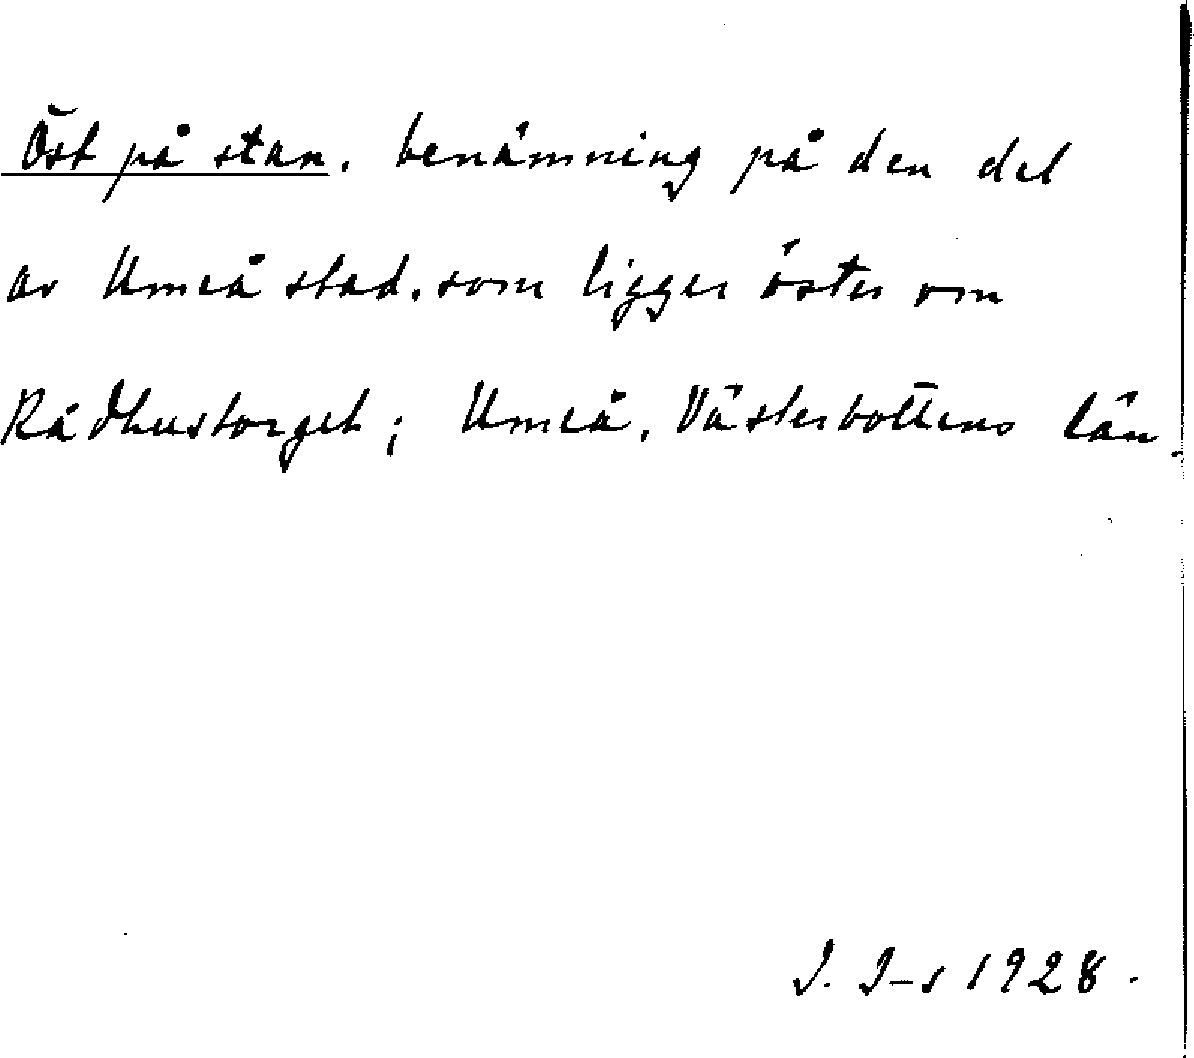 Öst på stan, benämning på den del
av Umeå stad, som ligger öster om
Rådhustorget; Umeå, Västerbottens län.
J. J-s 1928.